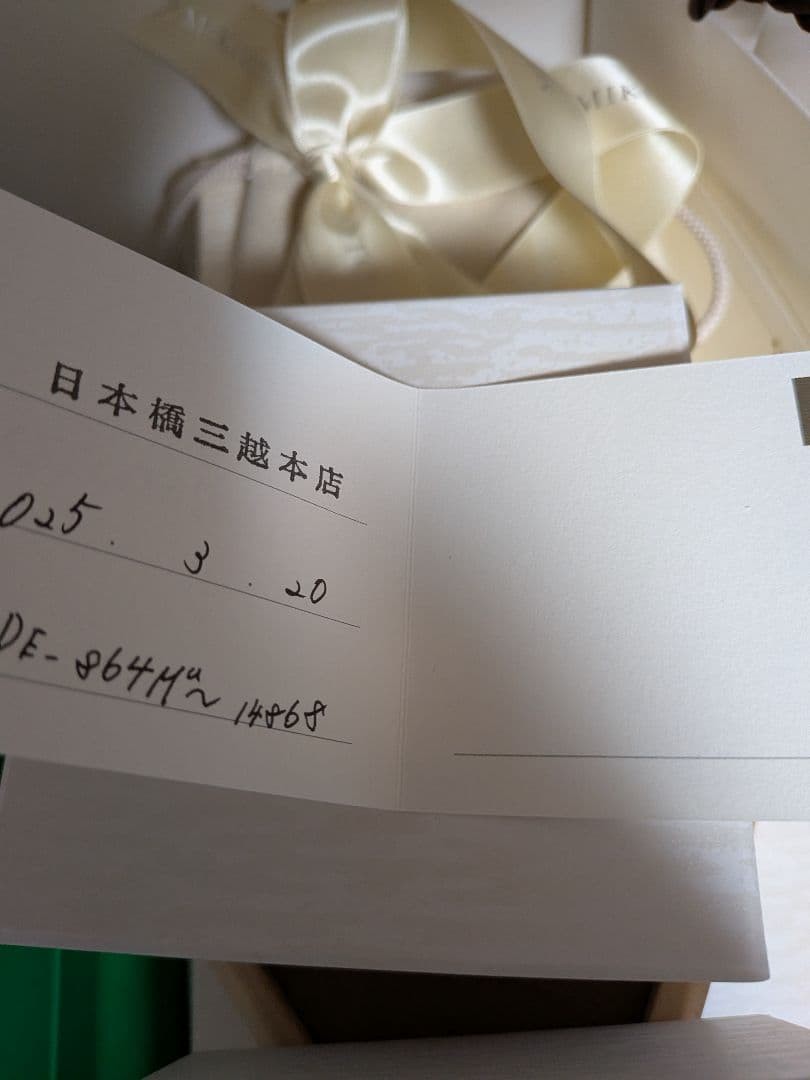 MIK
日本橋三越本店
025. 3. 20
DE-864Mu~ 14868